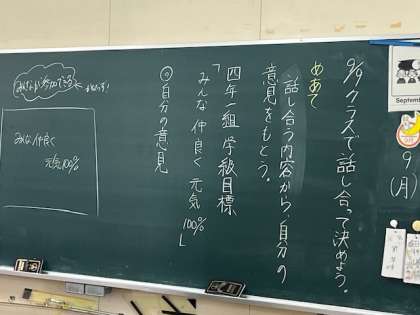 9/9 クラスで話し合って決めよう。
めあて
話し合う内容から、自分の
意見をもとう。
四年一組 学級目標
「みんな 仲良く 元気 100%」
◎自分の意見
みんなが参加できる
みんな仲良く
元気100%
September
9
(月)